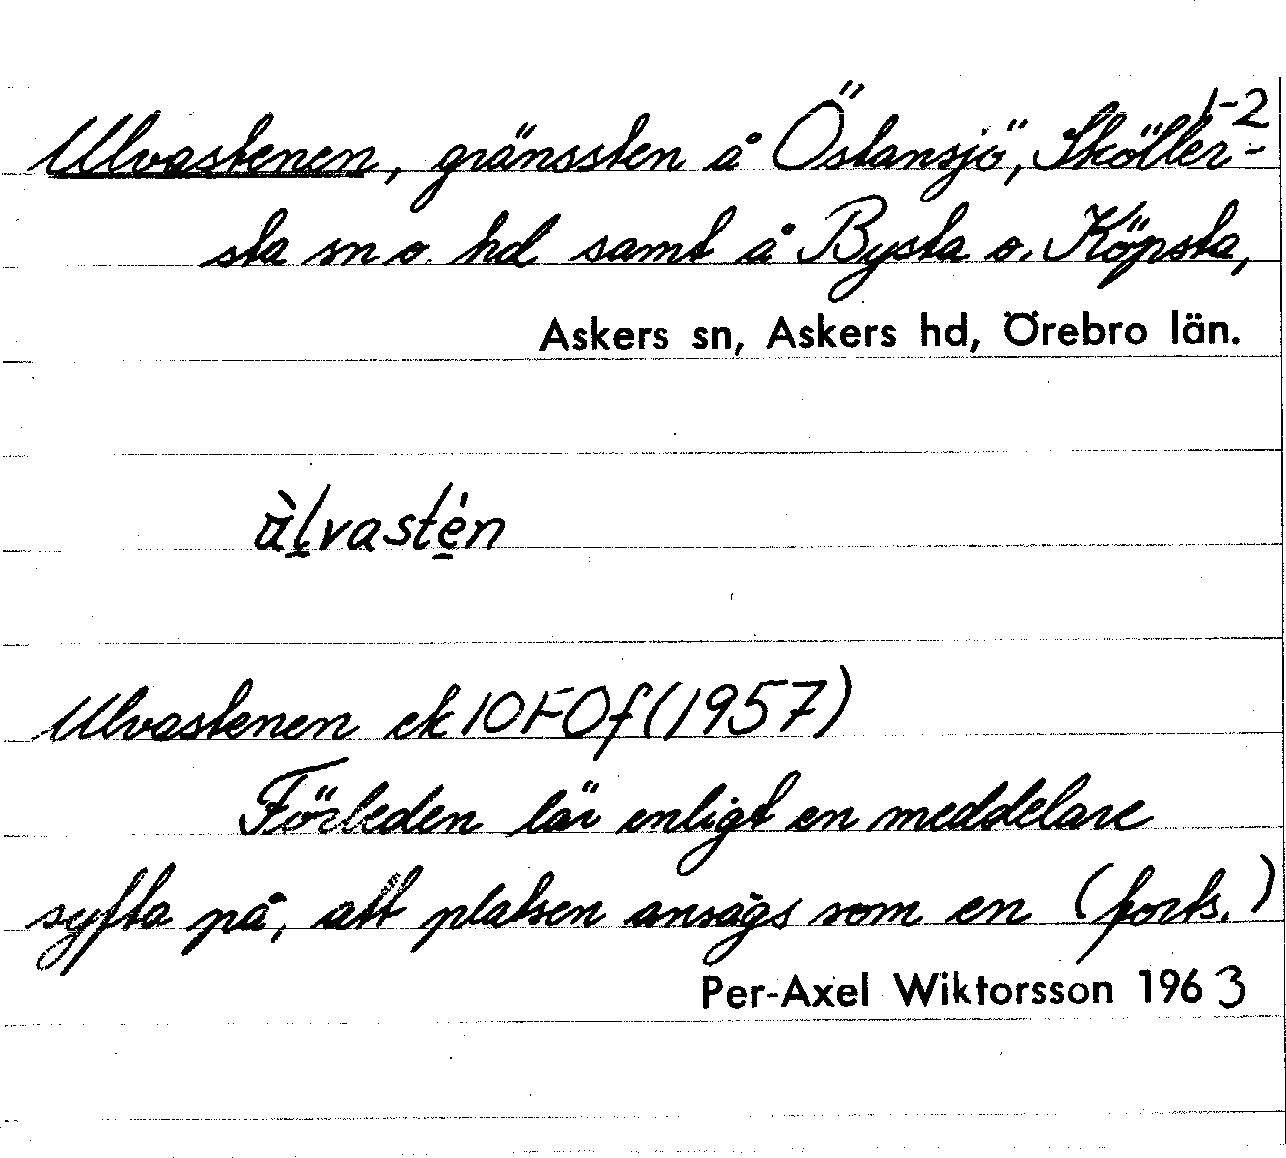 1-2
Ulvastenen, gränssten å Östansjö, Sköller-
sta sn o. hd samt å Bysta o. Köpsta,
Askers sn, Askers hd, Örebro län.
ùlvastén
Ulvastenen ek 10F0f (1957)
Förleden lär enligt en meddelare
syfta på, att platsen ansågs som en (forts.)
Per-Axel Wiktorsson 1963